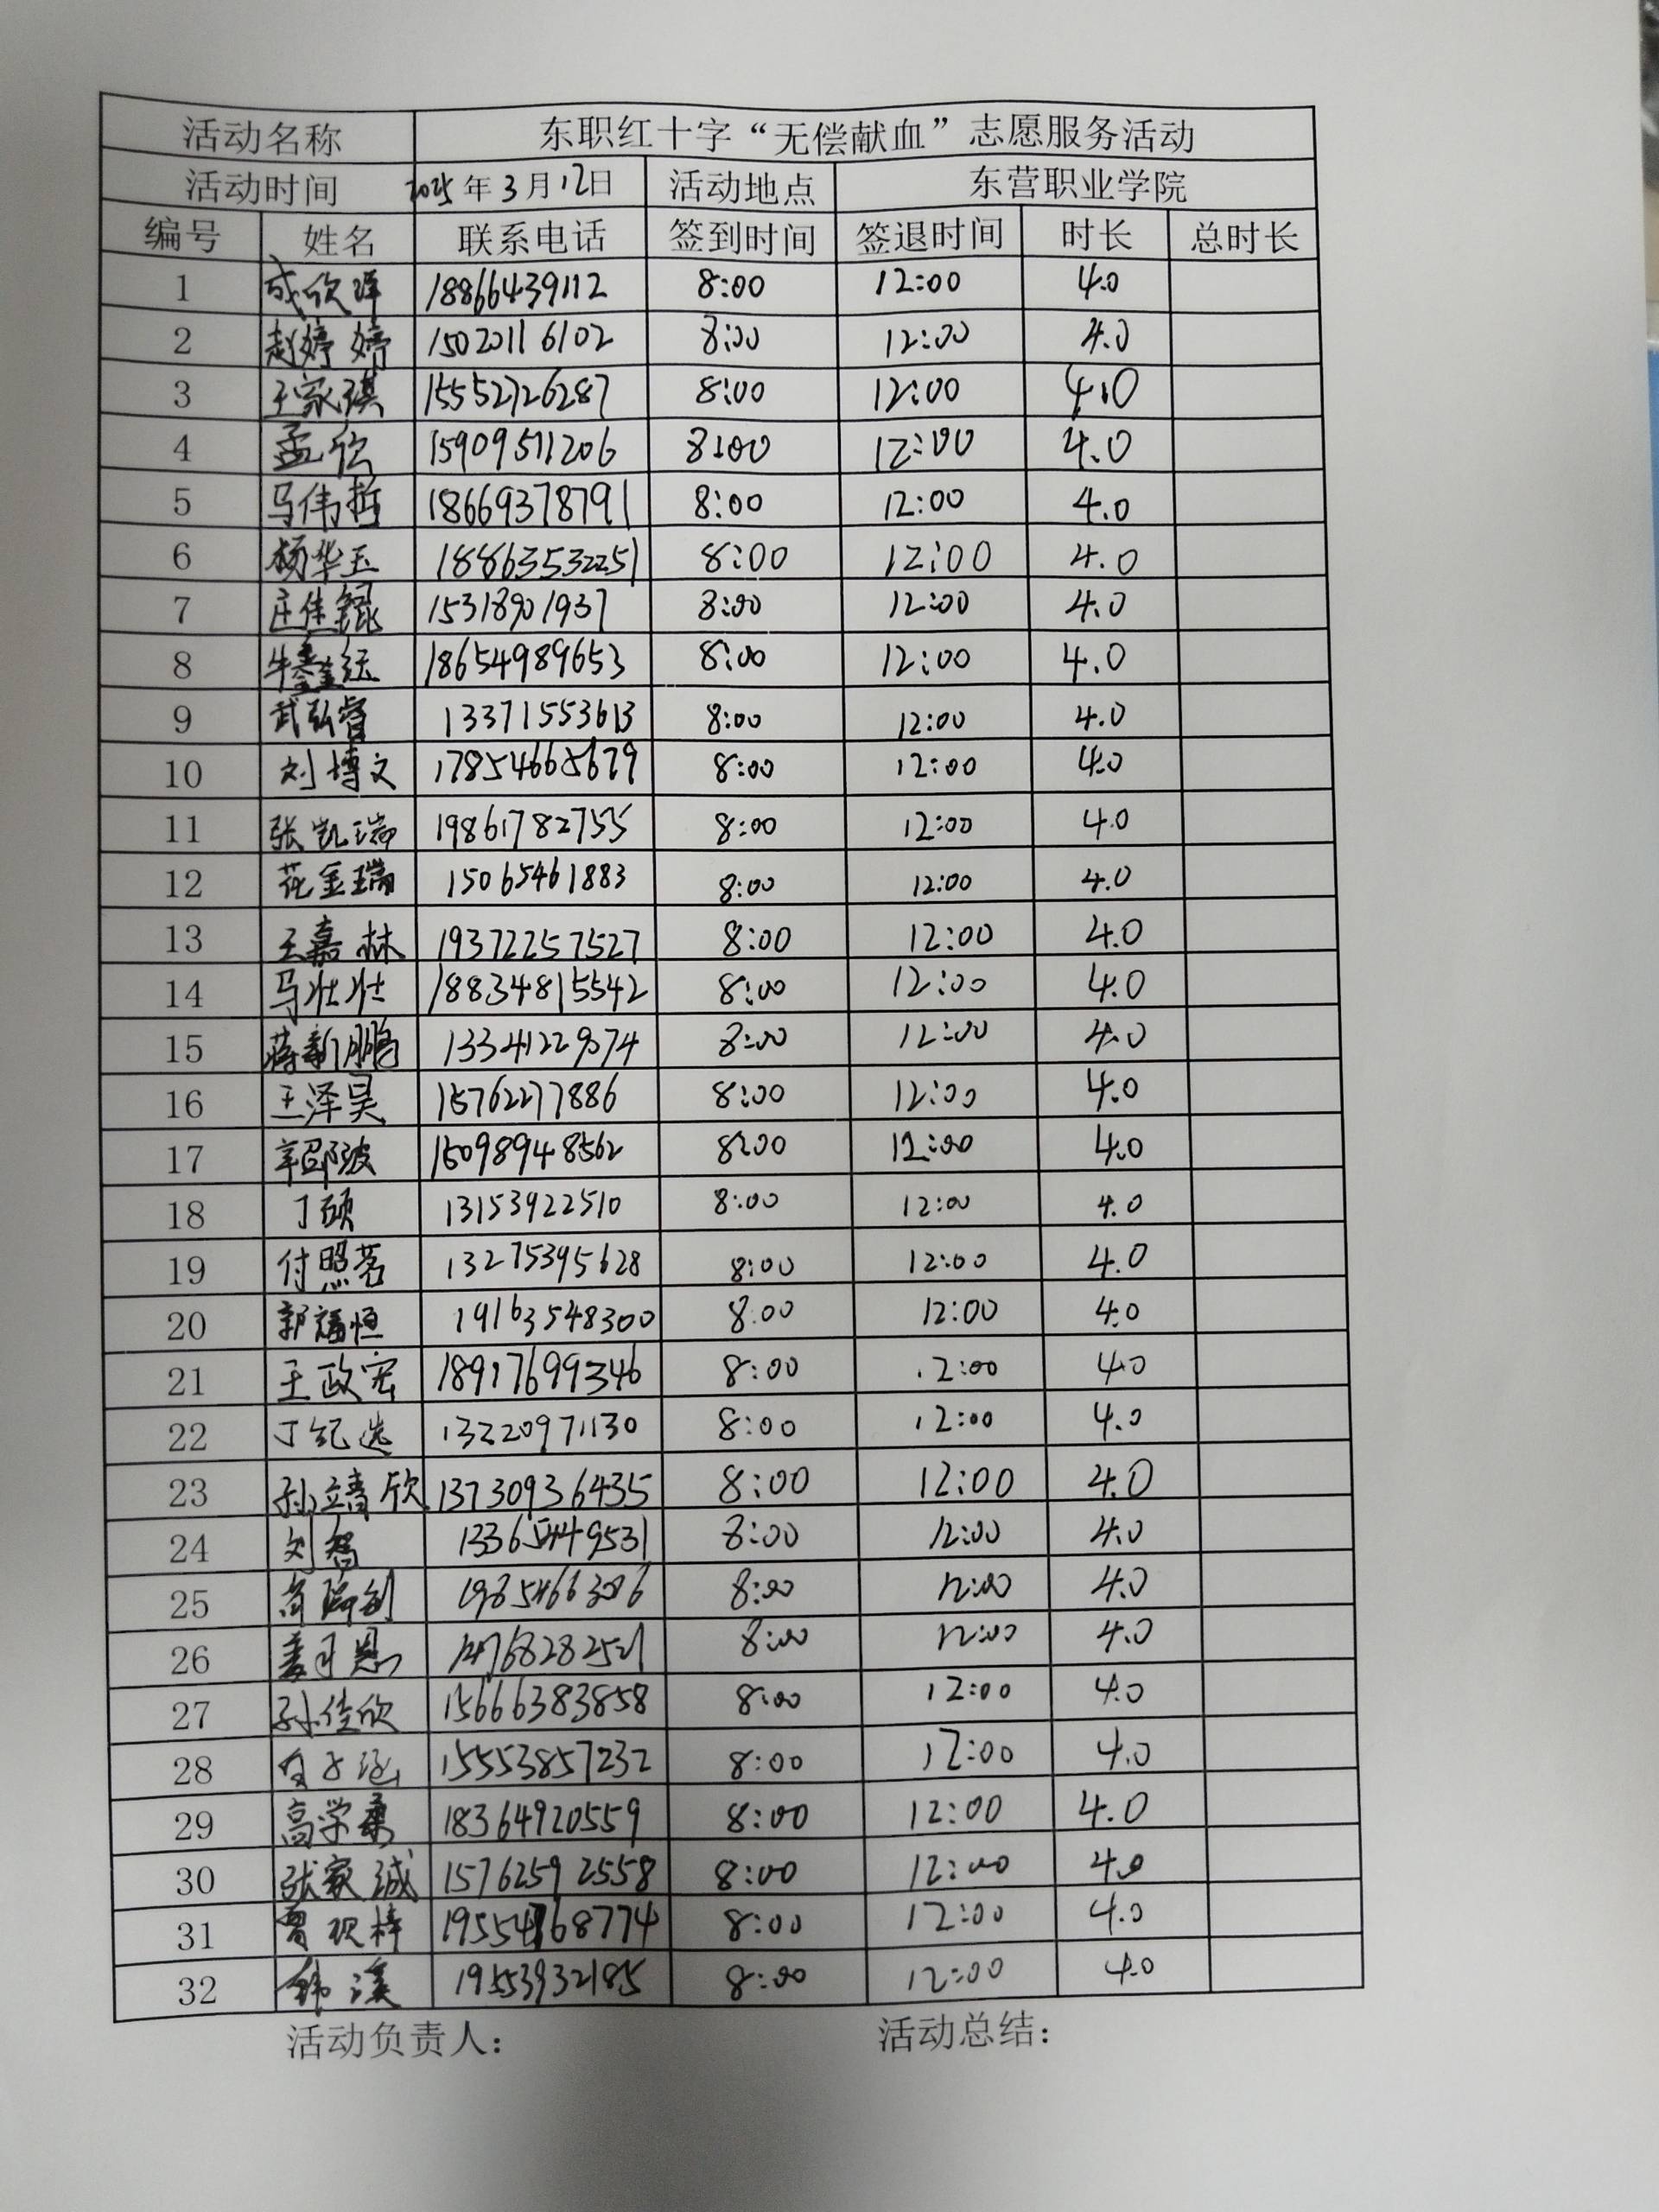 活动名称 东职红十字“无偿献血”志愿服务活动
活动时间 2025年3月12日 活动地点 东营职业学院
编号 姓名 联系电话 签到时间 签退时间 时长 总时长
1 成欣洋 18866439112 8:00 12:00 4.0
2 赵婷婷 15020116102 8:00 12:00 4.0
3 王家琪 15552726287 8:00 12:00 4.0
4 孟欣 15909511206 8:00 12:00 4.0
5 马伟哲 18669378791 8:00 12:00 4.0
6 杨华玉 18863532251 8:00 12:00 4.0
7 庄佳锟 15318901937 8:00 12:00 4.0
8 牛鑫 18654989653 8:00 12:00 4.0
9 武弘睿 13371553613 8:00 12:00 4.0
10 刘博文 17854665679 8:00 12:00 4.0
11 张凯瑞 19861782755 8:00 12:00 4.0
12 范金瑞 15065461883 8:00 12:00 4.0
13 王嘉林 19372257527 8:00 12:00 4.0
14 马壮壮 18834815542 8:00 12:00 4.0
15 蒋新鹏 13341229074 8:00 12:00 4.0
16 王泽昊 15762277886 8:00 12:00 4.0
17 辛邵波 15098948562 8:00 12:00 4.0
18 丁硕 13153922510 8:00 12:00 4.0
19 付照茗 13275395628 8:00 12:00 4.0
20 郭福恒 19163548300 8:00 12:00 4.0
21 王政宏 18917699346 8:00 12:00 4.0
22 丁纪选 13220971130 8:00 12:00 4.0
23 孙靖欣 13730936435 8:00 12:00 4.0
24 刘智 13365449531 8:00 12:00 4.0
25 8:00 12:00 4.0
26 8:00 12:00 4.0
27 孙佳欣 15666383858 8:00 12:00 4.0
28 15553857232 8:00 12:00 4.0
29 高学勇 18364920559 8:00 12:00 4.0
30 张家诚 15762592558 8:00 12:00 4.0
31 19554768774 8:00 12:00 4.0
32 韩溪 19553932185 8:00 12:00 4.0
活动负责人： 活动总结：